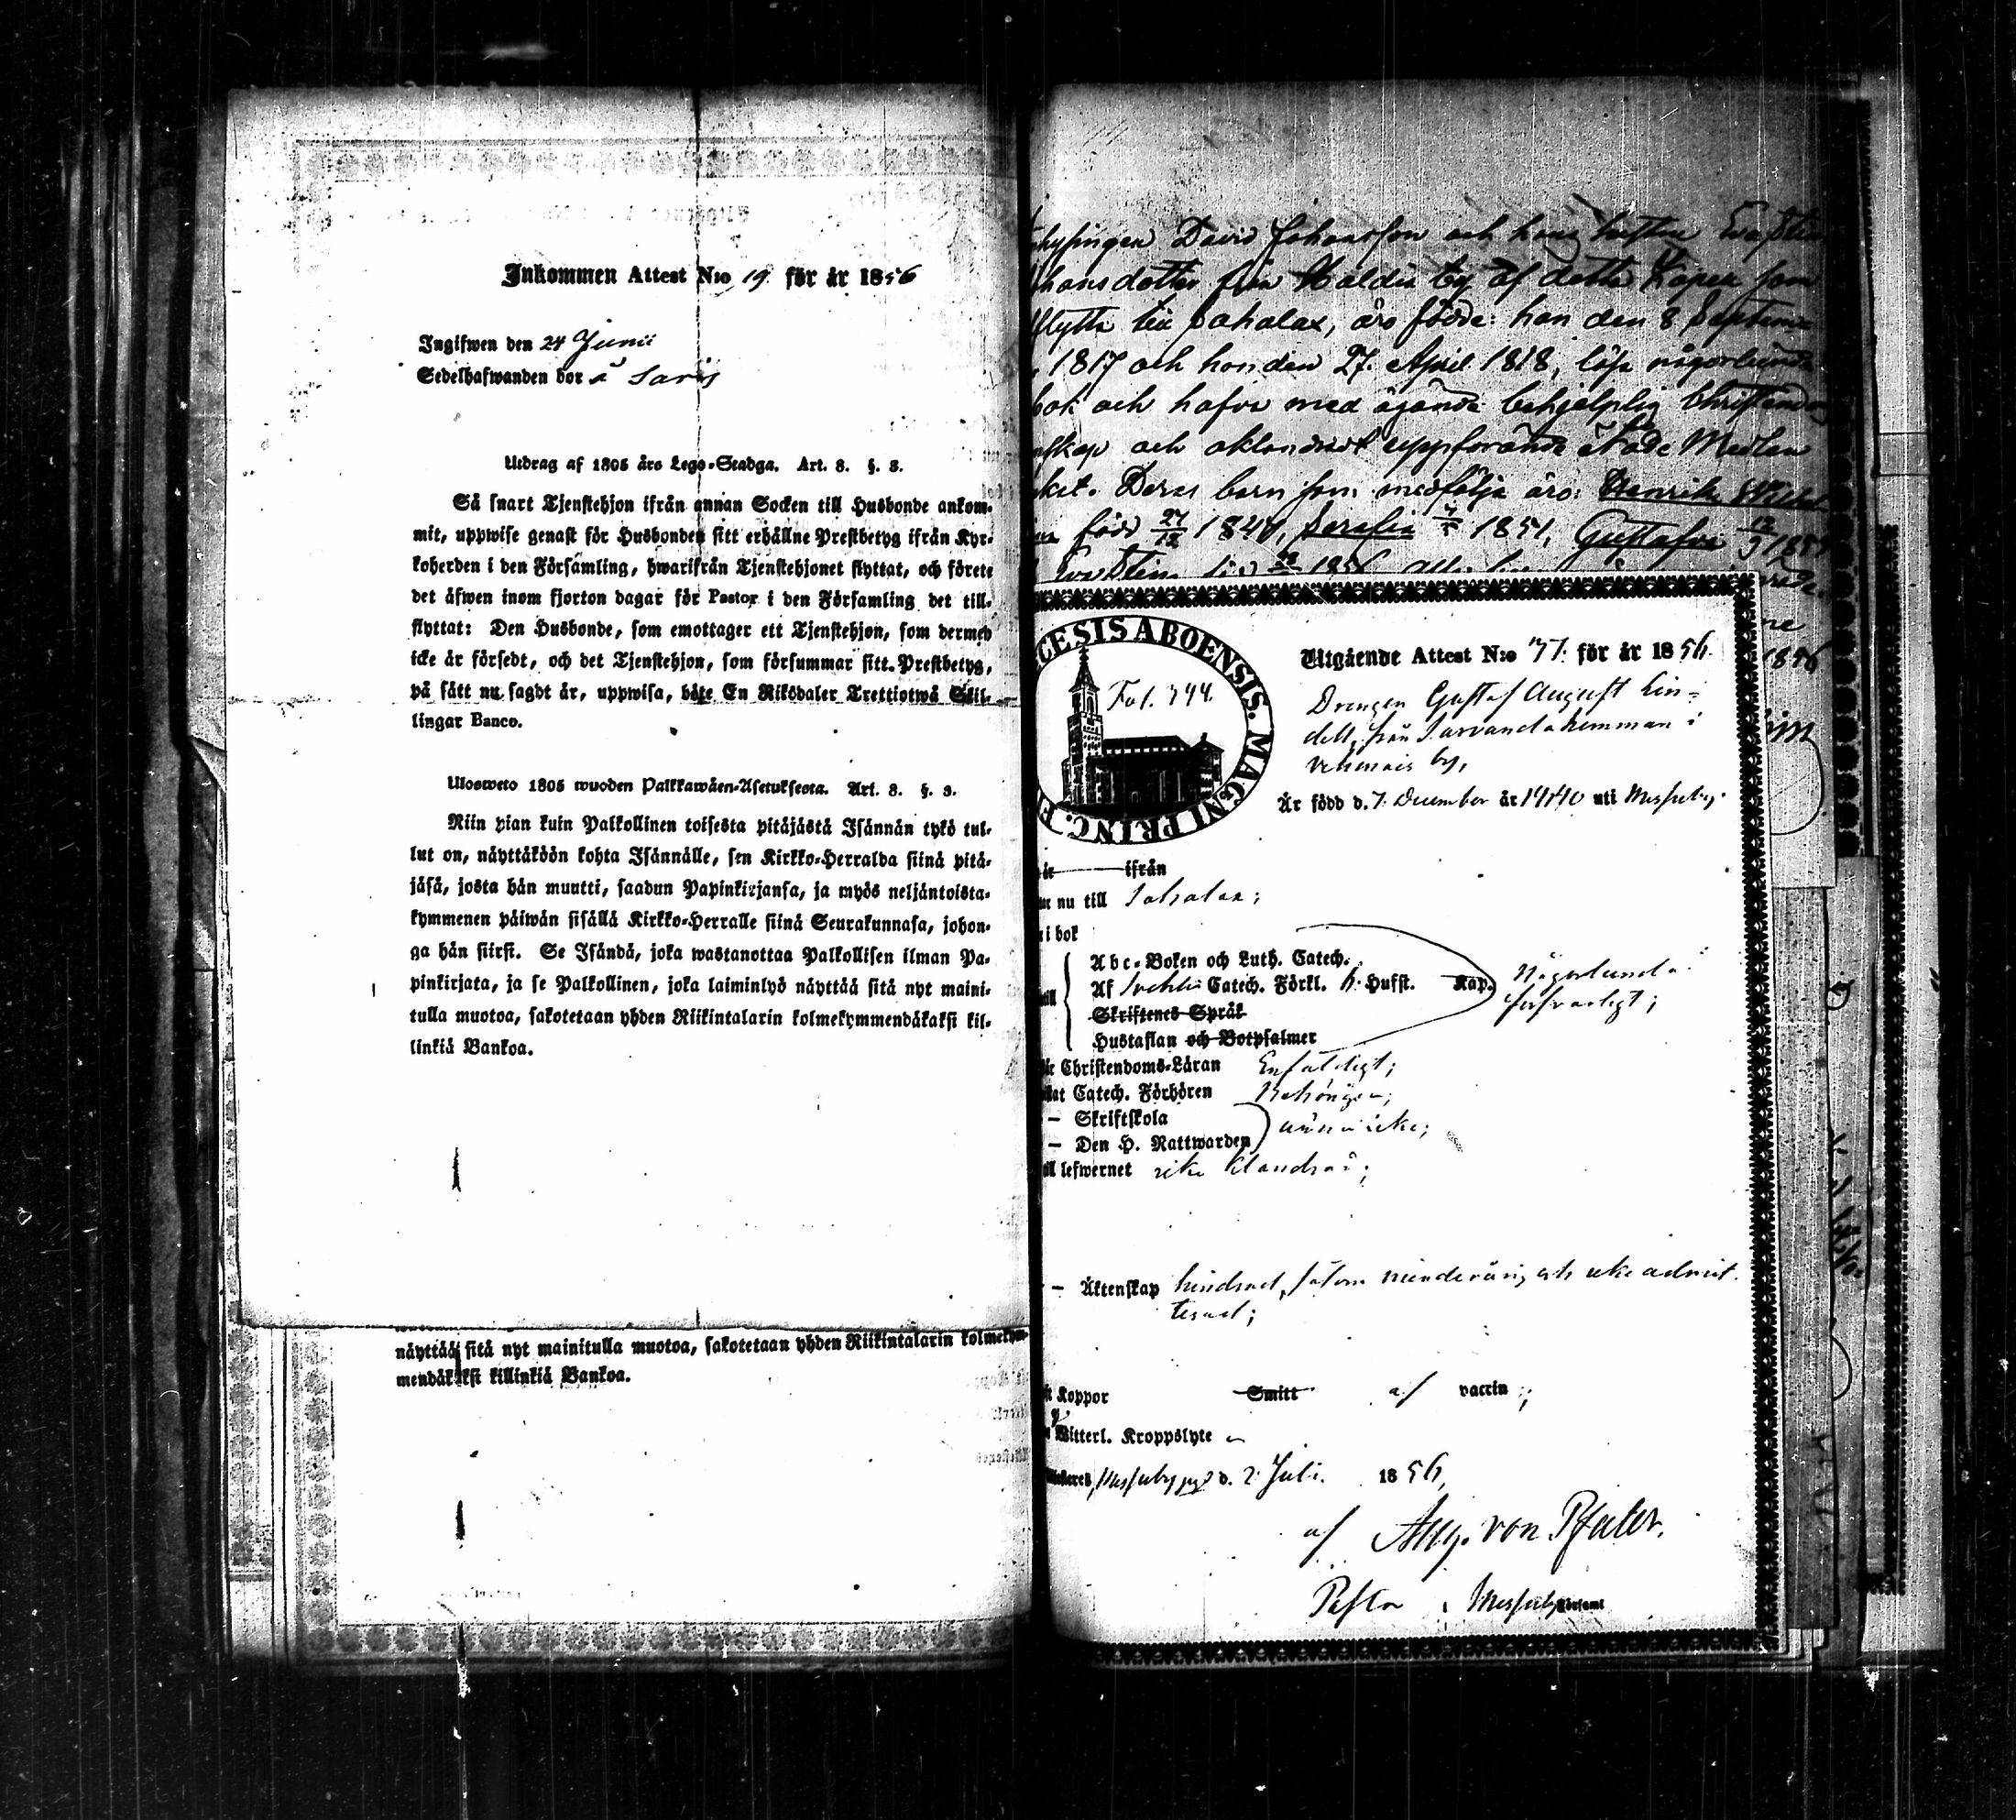 Inkommen Attest N:o 19 för år 1856
Ingifwen den 24 Junii
Sedelhafwanden bor å Saris
Utdrag af 1805 års Lego-Stadga. Art. 8. §. 8.
Så snart Tjenstehjon ifrån annan Socken till Husbonde ankom-
mit, uppwise genast för Husbonden sitt erhållne Prestbetyg ifrån Kyr-
koherden i den Församling, hwarifrån Tjenstehjonet flyttat, och förete
det äfwen inom fjorton dagar för Pastor i den Församling det till-
flyttat: Den Husbonde, som emottager ett Tjenstehjon, som dermed
icke är försedt, och det Tjenstehjon, som försummar sitt Prestbetyg,
på sätt nu sagdt är, uppwisa, böte En Riksdaler Trettiotwå Skil-
lingar Banco.
Ulosweto 1805 wuoden Palkkawäen-Asetuksesta. Art. 8. §. 8.
Niin pian kuin Palkollinen toisesta pitäjästä Isännän tykö tul-
lut on, näyttäköön kohta Isännälle, sen Kirkko-Herralda siinä pitä-
jäsä, josta hän muutti, saadun Papinkirjansa, ja myös neljäntoista-
kymmenen päiwän sisällä Kirkko-Herralle siinä Seurakunnasa, johon-
ga hän siirsi. Se Isändä, joka wastanottaa Palkollisen ilman Pa-
pinkirjata, ja se Palkollinen, joka laiminlyö näyttää sitä nyt maini-
tulla muotoa, sakotetaan yhden Riikintalarin kolmekymmendäkaksi kil-
linkiä Bankoa.
näyttää sitä nyt mainitulla muotoa, sakotetaan yhden Riikintalarin kolmekym-
mendäkaksi killinkiä Bankoa.
David Johansson och hans hustru Eva Stin
hansdotter från Haldia by af detta Kapell som
flytta till Sahalax, äro födde: han den 8 Septem-
1817 och hon den 27. April 1818, läsa någorlunda
bok och hafva med ägande behjelplig Christendoms
skap och oklandradt uppförande
Deras barn som medfölja äro: Henrika Vilhel-
född 27/12 1840, Serafia 1851, Gustafva 12/9 185
Eva Stina 1856
1856
DIOECESIS ABOENSIS. MAGNI PRINC. F
Fol. 344.
Utgående Attest N:o 77. för år 1856.
Drengen Gustaf August Lin-
dell, från Sarvanda hemman i
Vehmais by,
Är född d. 7. December år 1840 uti Messuby;
ifrån
nu till Sahalax;
i bok
Abc-Boken och Luth. Catech.
Af Svebelii Catech. Förkl. 6. Hufst. Kap.
Någorlunda
försvarligt;
Skriftenes Språk
Hustaflan och Botpsalmer
Christendoms-Läran Enfaldigt;
Catech. Förhören Behörigen;
— Skriftskola
— Den H. Nattwarden ännu icke;
till lefwernet icke klandrad;
— Äktenskap hindrad, såsom minderårig och icke admit-
terad;
Koppor Smitt af vaccin;
Witterl. Kroppslyte
Messuby d. 2 Juli. 1856,
af Aug. von Pfaler.
Pastor i Messuby